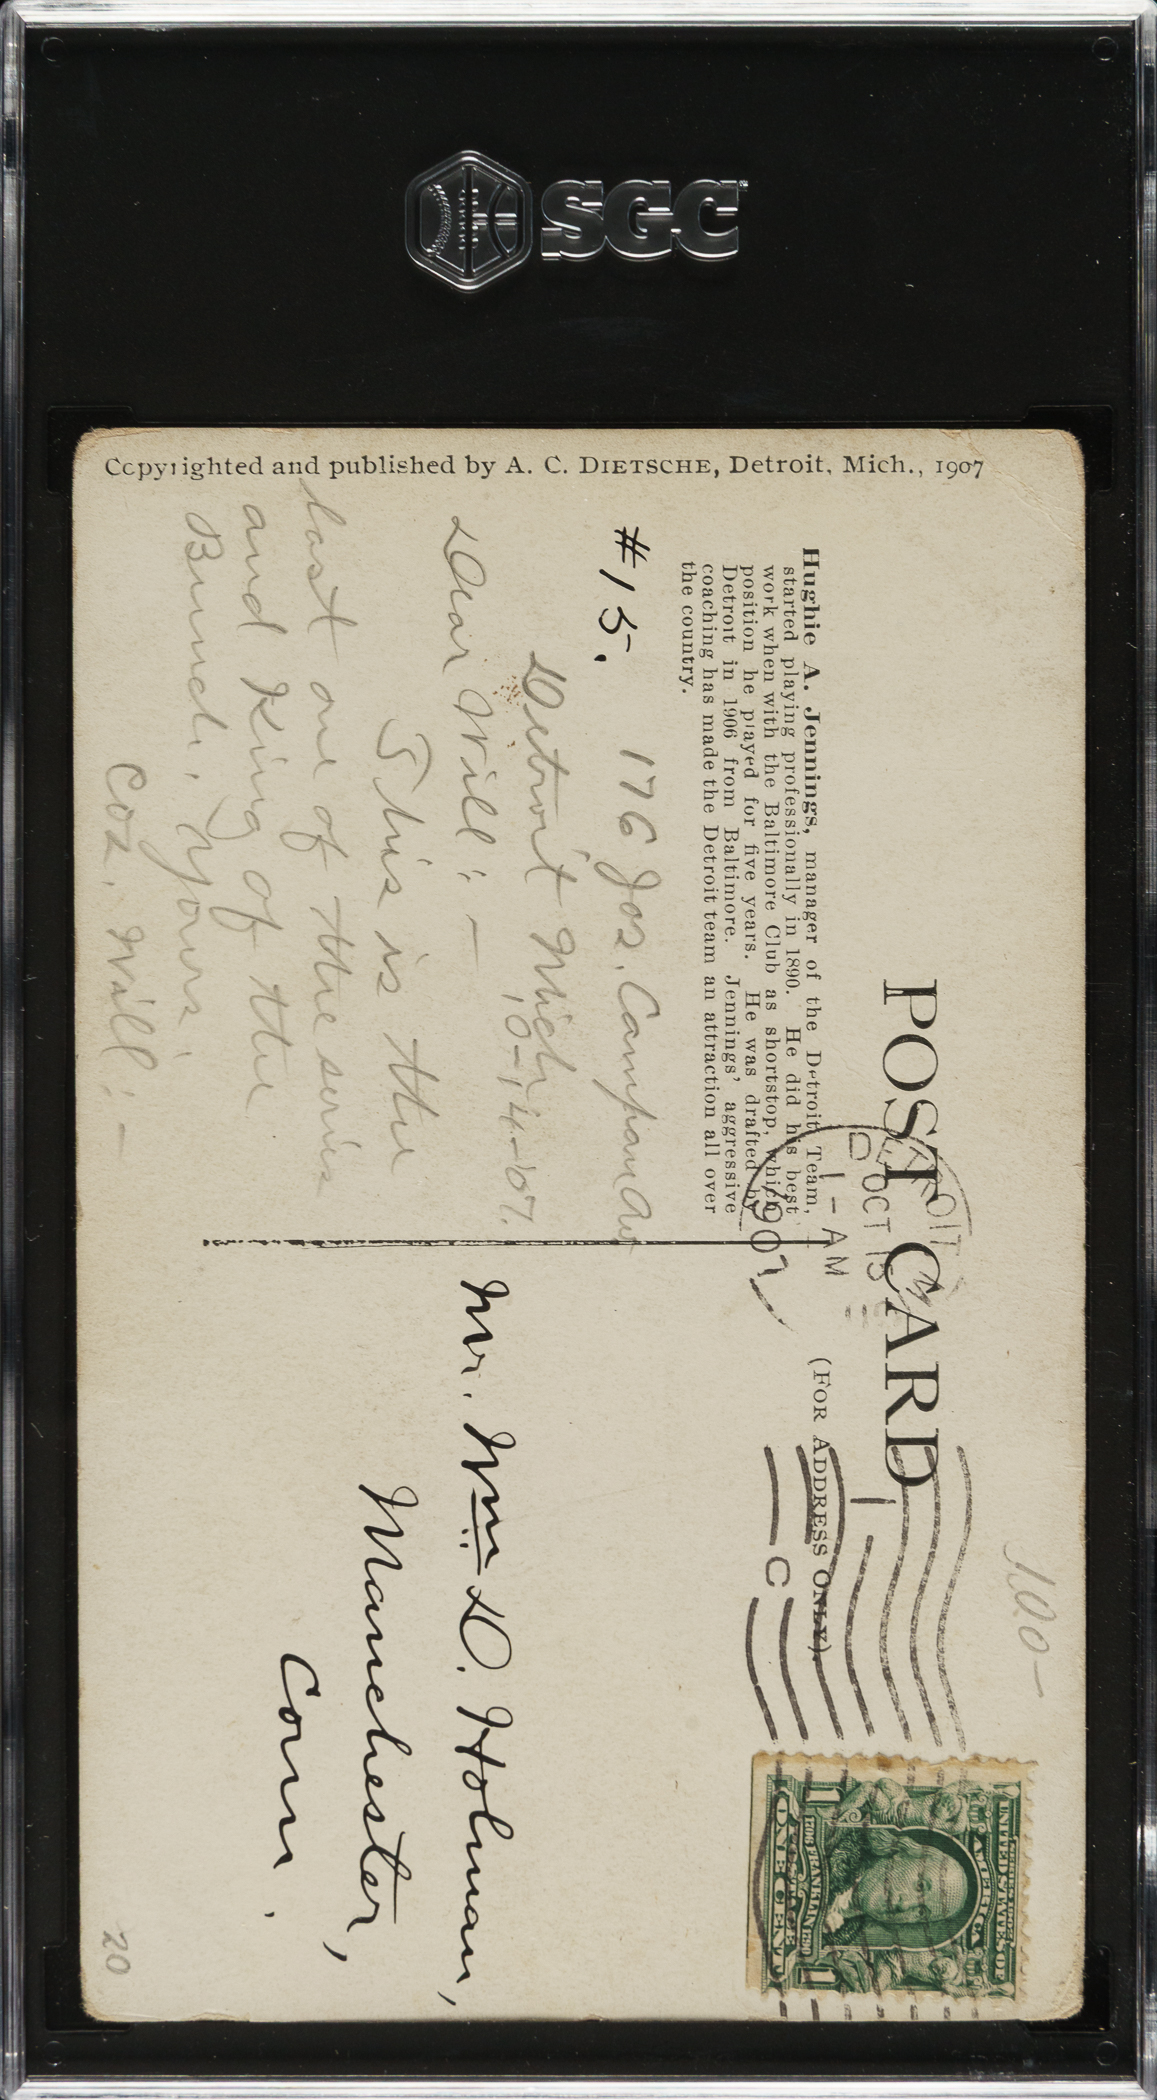 SGC
Ccpyrighted and published by A. C. DIETSCHE, Detroit, Mich., 1907
POST CARD
(FOR ADDRESS ONLY).
Hughie A. Jennings, manager of the Detroit Team,
started playing professionally in 1890. He did his best
work when with the Baltimore Club as shortstop, which
position he played for five years. He was drafted by
Detroit in 1906 from Baltimore. Jennings' aggressive
coaching has made the Detroit team an attraction all over
the country.
#15. 176 Jos. Campau Av
Detroit Mich
10-14-07.
Dear Will: —
This is the
last one of the series
and King of the
Bunch. Yours,
Coz. Will: —
DETROIT
OCT 15
1 - AM
1907
1
C
100-
SERIES 1902
UNITED STATES OF
AMERICA
1706 FRANKLIN 1790
POSTAGE
1 ONE CENT 1
Mr. Wm. D. Holman,
Manchester,
Conn.
20